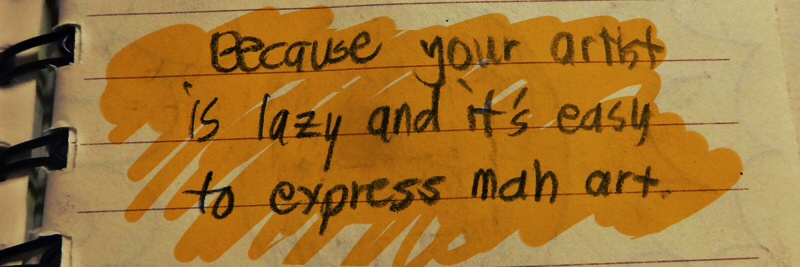 Because your artist
is lazy and it's easy
to express mah art.